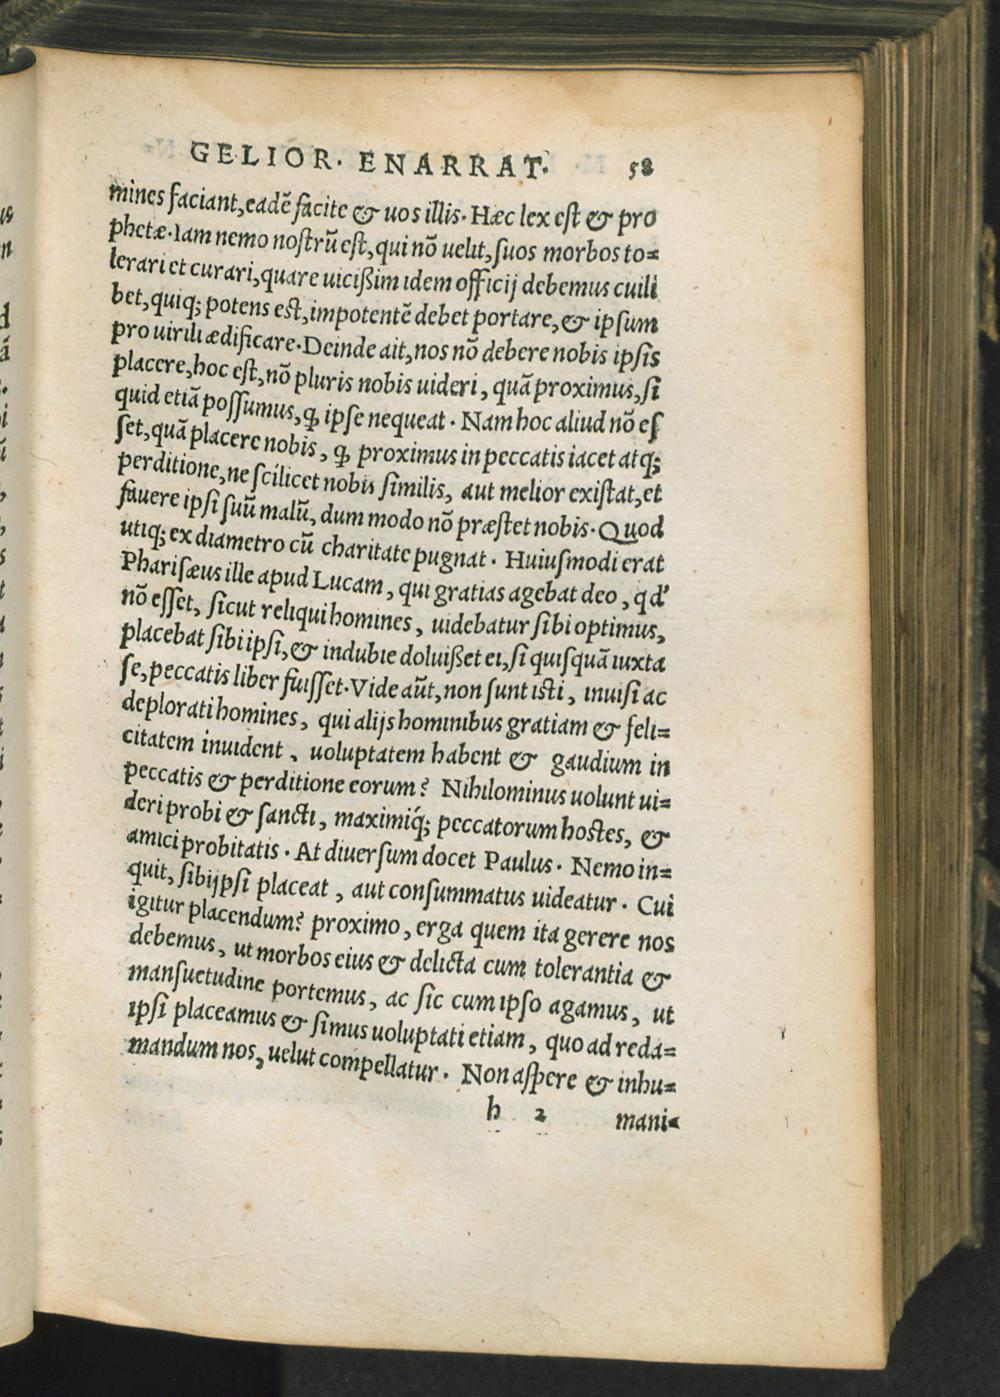 GELIOR. ENARRAT. 58
mines faciant, eadē facite & uos illis. Hæc lex est & pro
phetæ. Iam nemo nostrū est, qui nō uelit, suos morbos to=
lerari et curari, quare uicißim idem officij debemus cuili
bet, quiq; potens est, impotentē debet portare, & ipsum
pro uirili ædificare. Deinde ait, nos nō debere nobis ipsis
placere, hoc est, nō pluris nobis uideri, quā proximus, si
quid etiā possumus, ꝙ ipse nequeat. Nam hoc aliud nō es
set, quā placere nobis, ꝙ proximus in peccatis iacet atq;
perditione, ne scilicet nobis similis, aut melior existat, et
fauere ipsi suū malū, dum modo nō præstet nobis. Quod
utiq; ex diametro cū charitate pugnat. Huiusmodi erat
Pharisæus ille apud Lucam, qui gratias agebat deo, qd'
nō esset, sicut reliqui homines, uidebatur sibi optimus,
placebat sibi ipsi, & indubie doluißet ei, si quisquā iuxta
se, peccatis liber fuisset. Vide aūt, non sunt isti, inuisi ac
deplorati homines, qui alijs hominibus gratiam & feli=
citatem inuident, uoluptatem habent & gaudium in
peccatis & perditione eorum? Nihilominus uolunt ui=
deri probi & sancti, maximiq́; peccatorum hostes, &
amici probitatis. At diuersum docet Paulus. Nemo in=
quit, sibijpsi placeat, aut consummatus uideatur. Cui
igitur placendum? proximo, erga quem ita gerere nos
debemus, ut morbos eius & delicta cum tolerantia &
mansuetudine portemus, ac sic cum ipso agamus, ut
ipsi placeamus & simus uoluptati etiam, quo ad reda=
mandum nos, uelut compellatur. Non aspere & inhu=
h 2 mani=